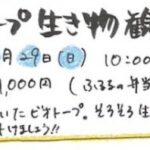 ープ 生き物 観
月29日(日) 10:00
1,000円 (ふるるの弁当
いたビオトープ。そろそろ生
けましょう!!